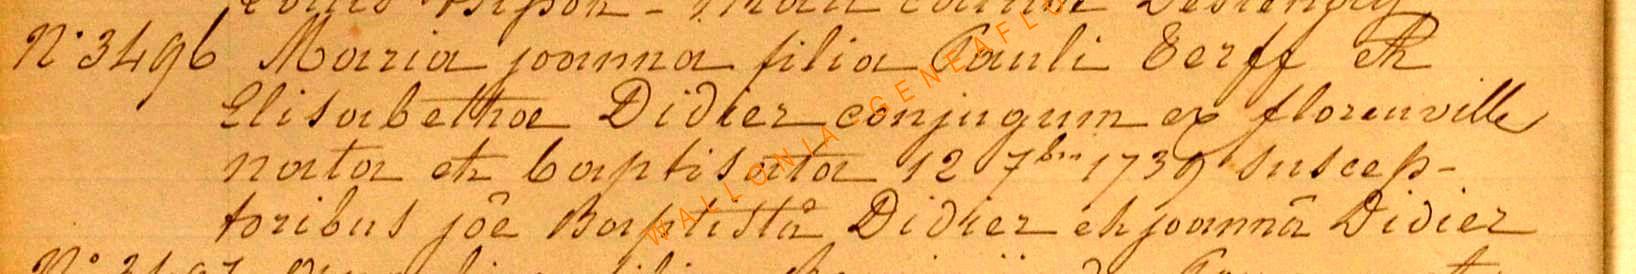 N° 3496 Maria joanna filia Pauli Terff et
Elisabethae Didier conjugum ex florenville
nata et baptisata 12 7bris 1739 suscep-
toribus jôe Baptistâ Didier et joannâ Didier
WALLONIA GENEAFLO